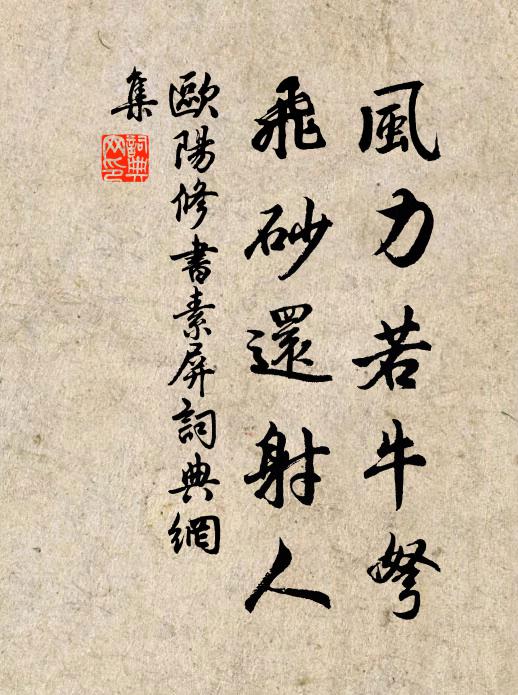 風力若牛弩
飛砂還射人
歐陽修書素屏詞典網
集
詞典
网印